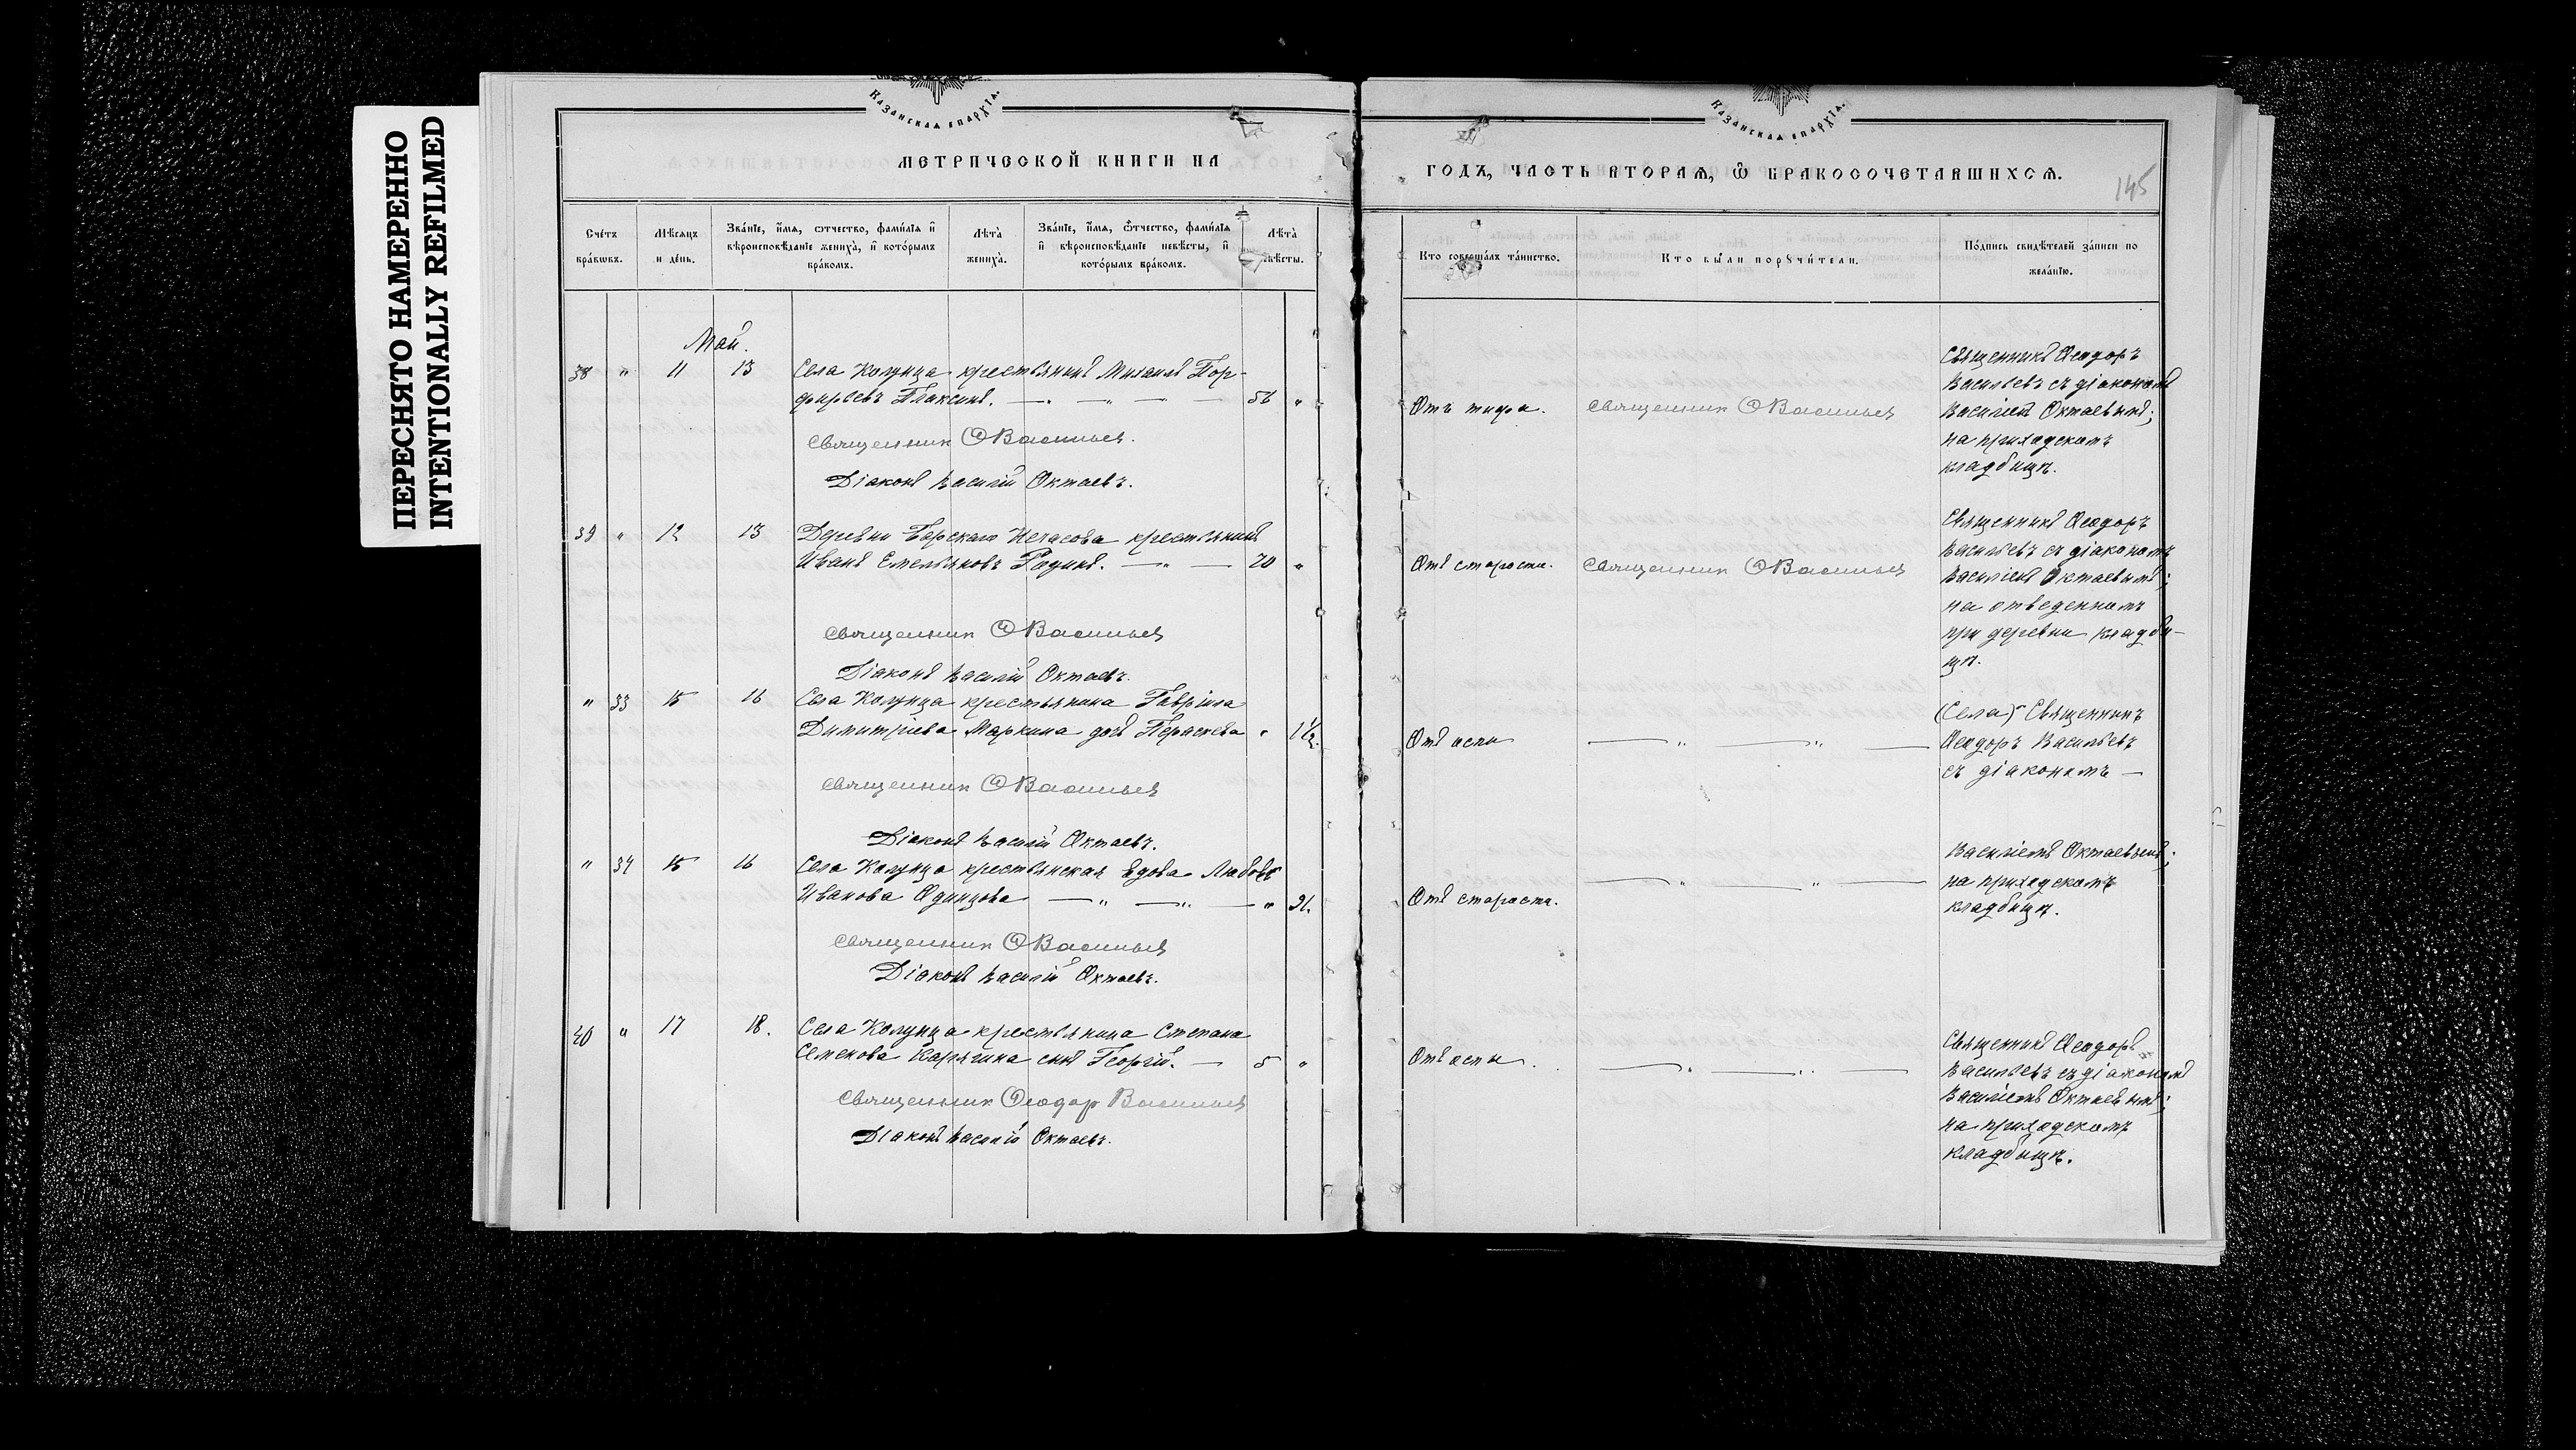 ПЕРЕСНЯТО НАМЕРЕННО
INTENTIONALLY REFILMED
КАЗАНСКАѦ ЕПАРХІА.
МЕТРИЧЕСКОЙ КНИГИ НА
Сче́тъ бра́кѡвъ.
Мѣсяцъ и де́нь.
Зва́нїе, и́мѧ, ѻтчество, фамилїѧ и вѣроисповѣданїе жениха̀, и кото́рымъ бра́комъ.
Лѣта̀ жениха̀.
Зва́нїе, и́мѧ, ѻ́тчество, фамилїѧ и вѣроисповѣданїе невѣсты, и кото́рымъ бра́комъ.
Лѣта̀ невѣсты.
Май.
38 " 11 13 Села Колунца крестьянинъ Михаилъ Пор-
фирьевъ Плаксинъ. — " — " — 56 "
Священник Ѳ Васильев.
Діаконъ Василій Октаевъ.
39 " 12 13 Деревни Борскаго Нечасова крестьянинъ
Иванъ Емельяновъ Родинъ. — " — 70 "
Священник Ѳ Васильев
Діаконъ Василій Октаевъ.
" 33 15 16 Села Колунца крестьянина Гавріила
Димитріева Маркина дочь Параскева " 1½.
Священник Ѳ Васильев
Діаконъ Василій Октаевъ.
" 34 15 16 Села Колунца крестьянская вдова Любовь
Иванова Одинцова — " — " — " 91.
Священник Ѳ Васильев
Діаконъ Василій Октаевъ.
40 " 17 18. Села Колунца крестьянина Степана
Семенова Карягина сынъ Георгій. — 5 "
Священник Ѳеодор Васильев
Діаконъ Василій Октаевъ.
КАЗАНСКАѦ ЕПАРХІА.
ГОДЪ, ЧАСТЬ ВТОРАѦ, Ѽ БРАКОСОЧЕТАВШИХСѦ.
145
Кто̀ соверша́лъ та́инство.
Кто̀ бы́ли порꙋчи́тели.
По́дпись свидѣтелей за́писи по жела́нїю.
Отъ тифа. Священник Ѳ Васильев
Священникъ Ѳеодоръ
Васильевъ съ діакономъ
Василіемъ Октаевымъ;
на приходскомъ
кладбищѣ.
Отъ старости. Священник Ѳ Васильев
Священникъ Ѳеодоръ
Васильевъ съ діакономъ
Василіемъ Октаевымъ;
на отведенномъ
при деревни кладби-
щѣ.
Отъ оспы — " — " —
(Села) Священникъ
Ѳеодоръ Васильевъ
съ діакономъ —
Отъ старости. — " — " —
Василіемъ Октаевымъ;
на приходскомъ
кладбищѣ.
Отъ оспы. — " — " —
Священникъ Ѳеодоръ
Васильевъ съ діакономъ
Василіемъ Октаевымъ;
на приходскомъ
кладбищѣ.